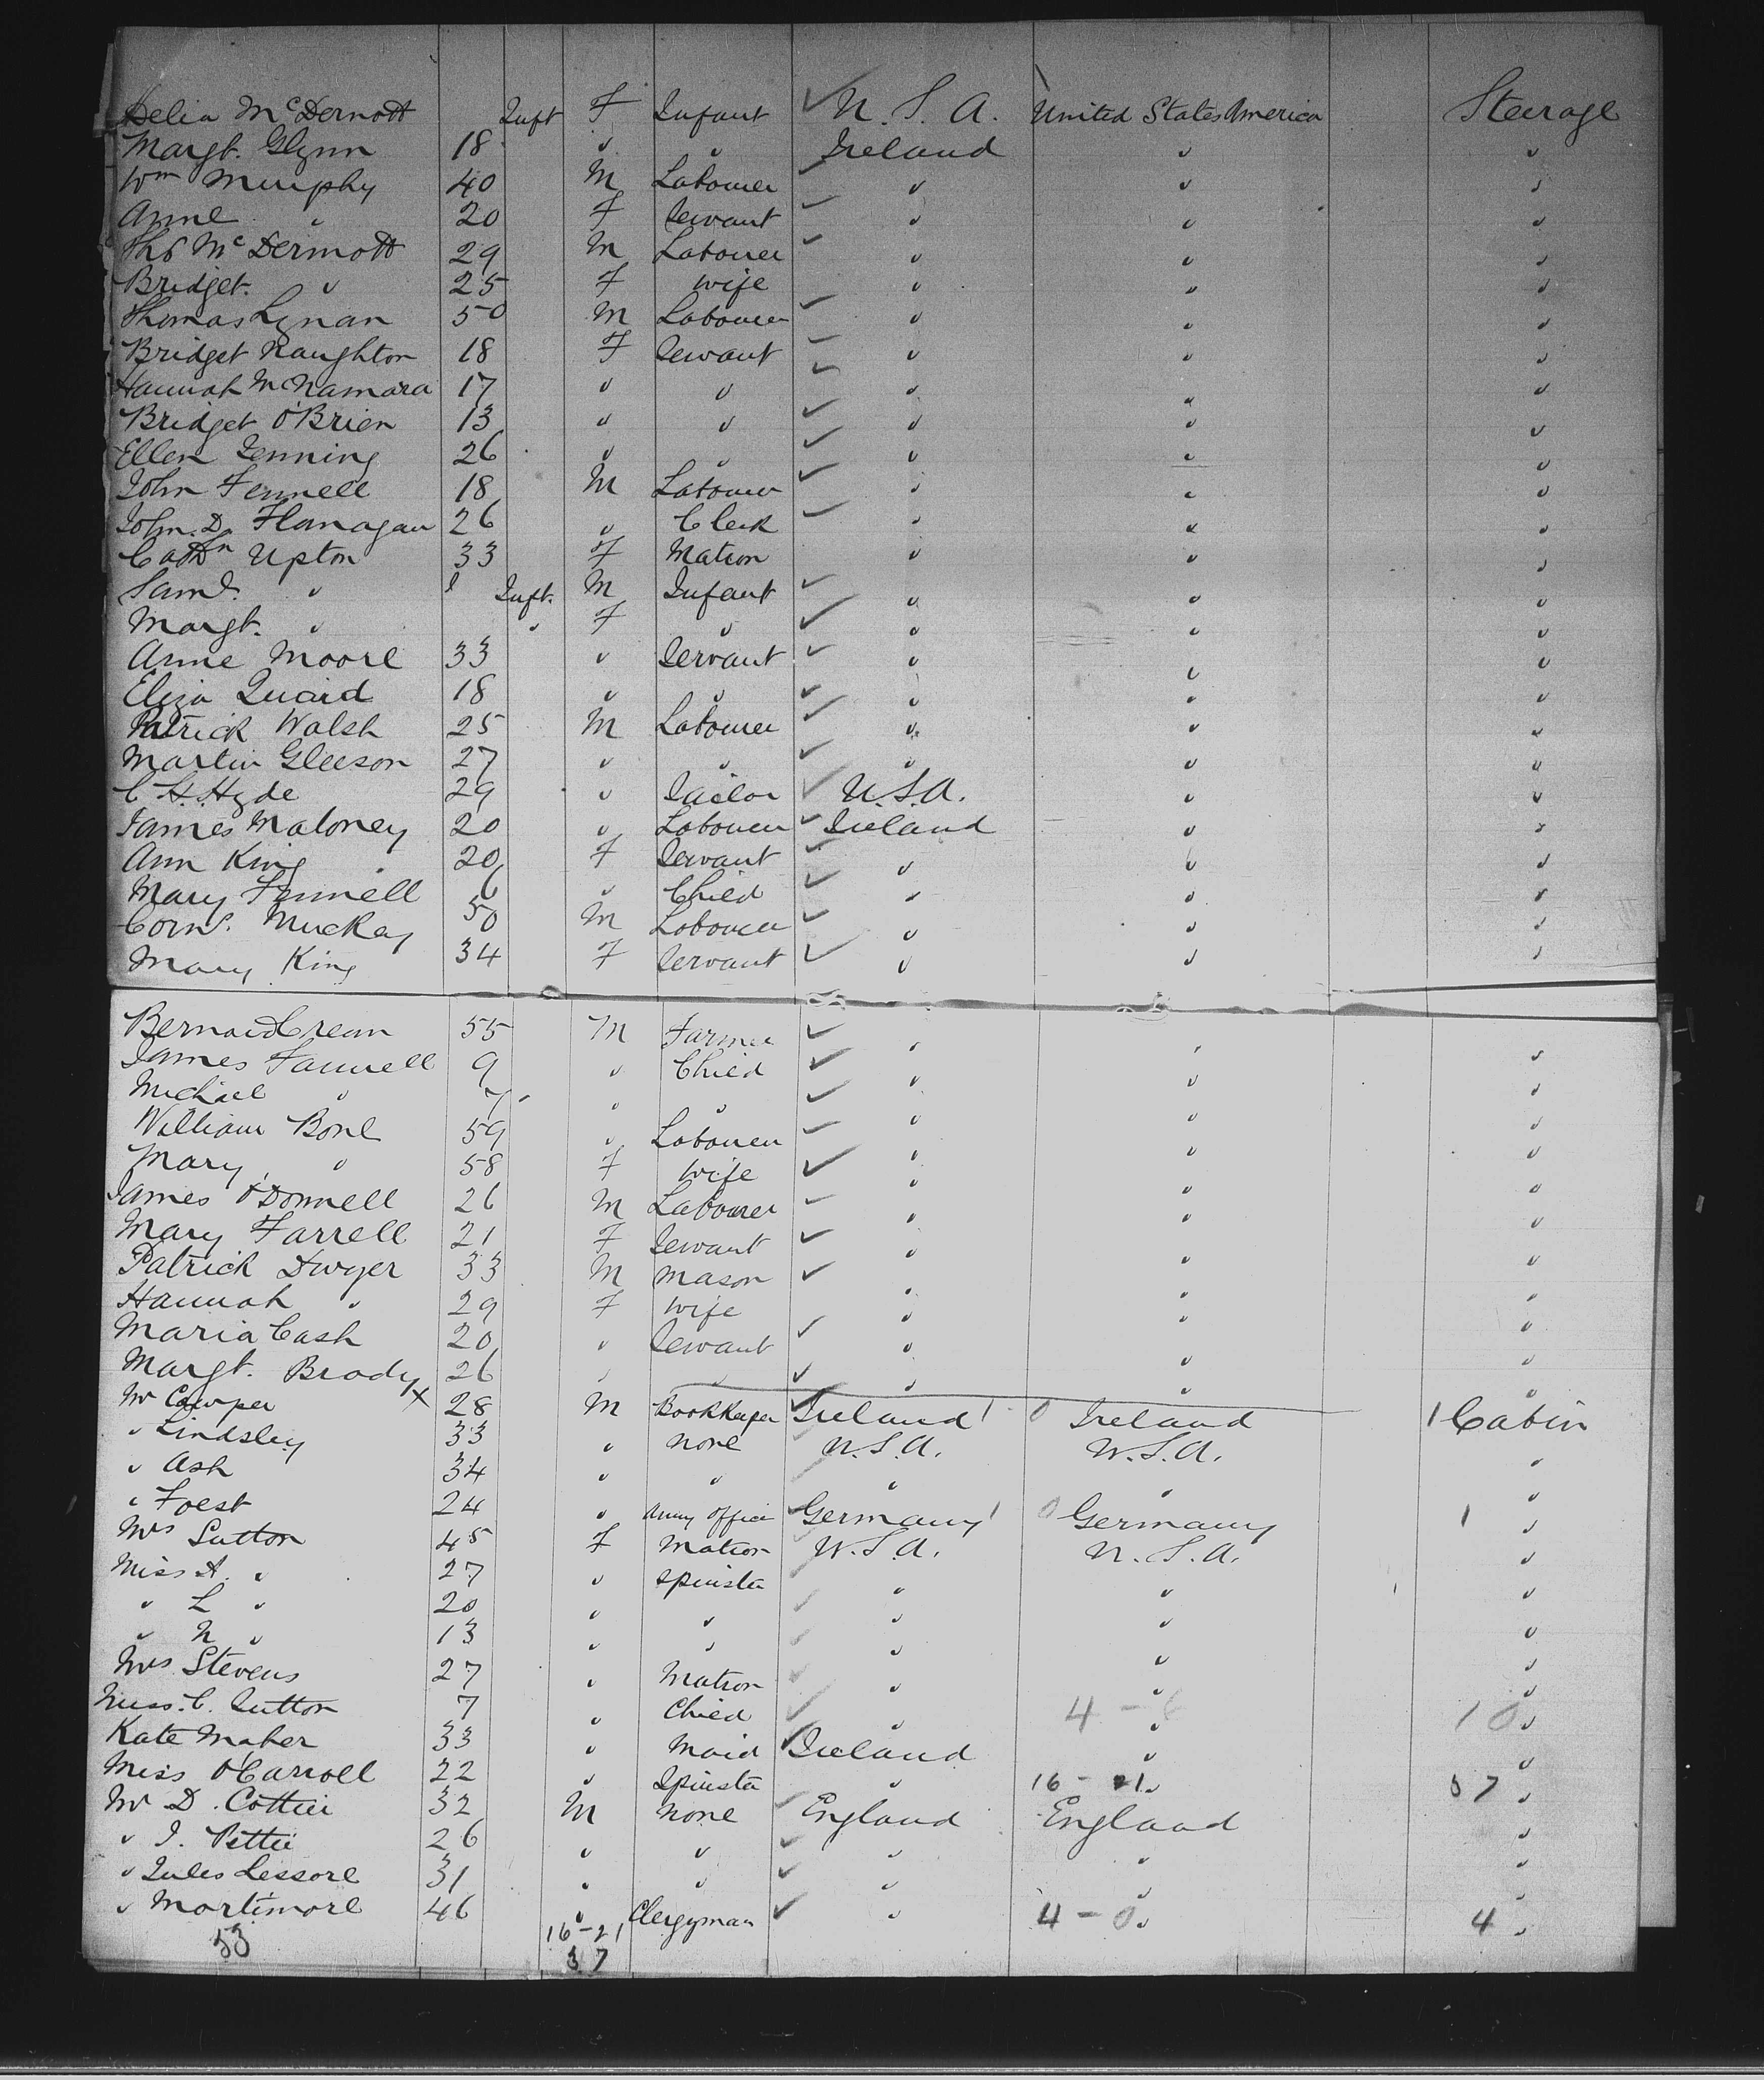 Delia McDermott Inft F Infant U.S.A. United States America Steerage
Margt. Glynn 18 " " Ireland " "
Wm Murphy 40 M Labourer " " "
Anne " 20 F Servant " " "
Thos McDermott 29 M Labourer " " "
Bridget " 25 F Wife " " "
Thomas Lynan 50 M Labourer " " "
Bridget Naughton 18 F Servant " " "
Hannah McNamara 17 " " " " "
Bridget O'Brien 13 " " " " "
Ellen Jenning 26 " " " " "
John Fennell 18 M Labourer " " "
John D. Flanagan 26 " Clerk " " "
Cathn Upton 33 F Matron " " "
Saml. " 1 Inft. M Infant " " "
Margt. " " F " " " "
Anne Moore 33 " Servant " " "
Eliza Quaid 18 " " " " "
Patrick Walsh 25 M Labourer " " "
Martin Gleeson 27 " " " " "
C. H. Hyde 29 " Tailor U.S.A. " "
James Maloney 20 " Labourer Ireland " "
Ann King 20 F Servant " " "
Mary Fennell 6 " Child " " "
Corns. Muckay 50 M Labourer " " "
Mary King 34 F Servant " " "
Bernard Crean 55 M Farmer " " "
James Fannell 9 " Child " " "
Michael " 7 " " " " "
William Bone 59 " Labourer " " "
Mary " 58 F Wife " " "
James O'Donnell 26 M Labourer " " "
Mary Farrell 21 F Servant " " "
Patrick Dwyer 33 M Mason " " "
Hannah " 29 F Wife " " "
Maria Cash 20 " Servant " " "
Margt. Brady 26 " " " " "
Mr Cowper x 28 M Bookkeeper Ireland 1 0 Ireland 1 Cabin
" Lindsley 33 " None U.S.A. U.S.A. "
" Ash 34 " " " " "
" Foest 24 " Army Officer Germany 1 0 Germany 1 "
Mrs Sutton 45 F Matron U.S.A. U.S.A. "
Miss A. " 27 " Spinster " " "
" L " 20 " " " " "
" N " 13 " " " " "
Mrs Stevens 27 " Matron " " "
Miss. C. Sutton 7 " Child " 4 - " 10 "
Kate Maher 33 " Maid Ireland " "
Miss O'Carroll 22 " Spinster " 16 - 21 " 37 "
Mr D. Cottier 32 M None England England "
" J. Pettie 26 " " " " "
" Jules Lessore 31 " " " " "
" Mortimore 46 " Clergyman " 4 - 0 " 4 "
53 16-21
37